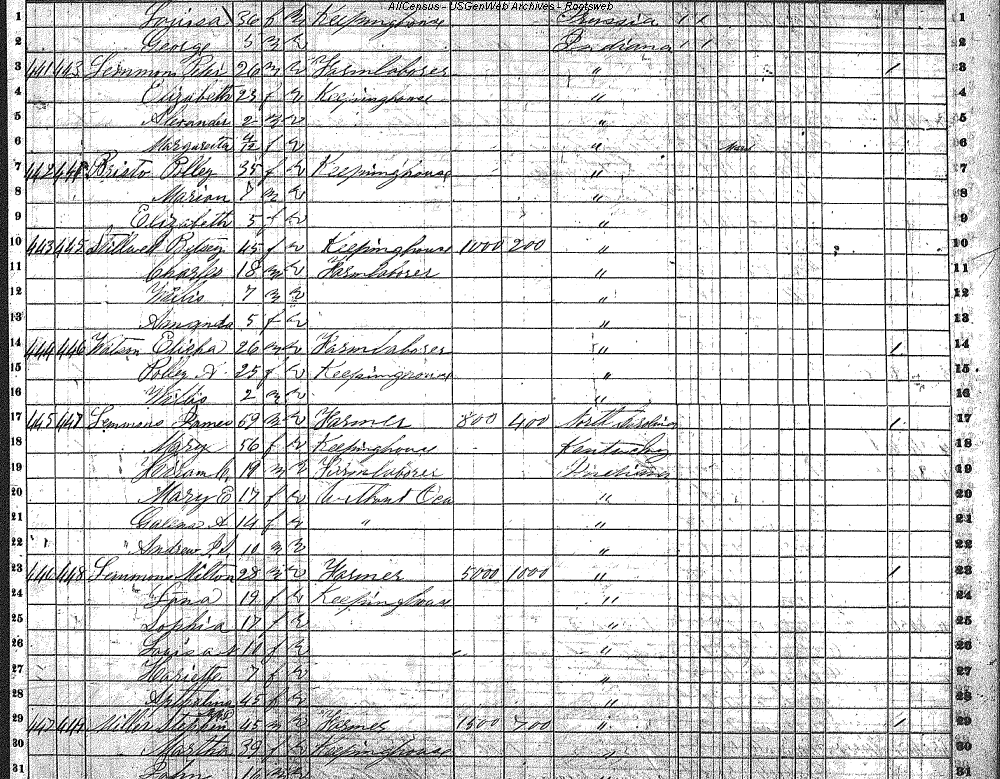 AllCensus - USGenWeb Archives - Rootsweb
1 Louisa 36 f W Keepinghouse Prussia 1 1 1
2 George 5 m W Indiana 1 1 2
3 441 443 Lemmons Peter 26 m W Farmlaborer " 1 3
4 Elizabeth 23 f W Keepinghouse " 4
5 Alexander 2 m W " 5
6 Margareita 4/12 f W " 6
7 442 444 Bristo Polley 35 f W Keepinghouse " 7
8 Marion 8 m W " 8
9 Elizabeth 5 f W " 9
10 443 445 45 f W Keepinghouse 1000 200 " 10
11 Charles 18 m W Farmlaborer " 11
12 Willis 7 m W " 12
13 Amanda 5 f W " 13
14 444 446 Watson Elisha 26 m W Farmlaborer " 1 14
15 Polley A. 25 f W Keepinghouse " 15
16 Willis 2 m W " 16
17 445 447 Lemmons James 59 m W Farmer 800 400 North Carolina 1 17
18 Mary 56 f W Keepinghouse Kentucky 18
19 Hiram 19 m W Farmlaborer Indiana 19
20 Mary E 17 f W Without Oca " 20
21 A 14 f W " " 21
22 Andrew J. 10 m W " 22
23 446 448 Lemmons Milton 28 m W Farmer 5000 1000 " 1 23
24 19 f W Keepinghouse " 24
25 Sophia 17 f W " 25
26 Louisa 10 f W " 26
27 Hariette 7 f W " 27
28 45 f W 28
29 447 449 Miller Stephen 45 m W Farmer 1500 700 " 1 29
30 Martha 39 f W Keepinghouse " 30
31 John 16 m W 31